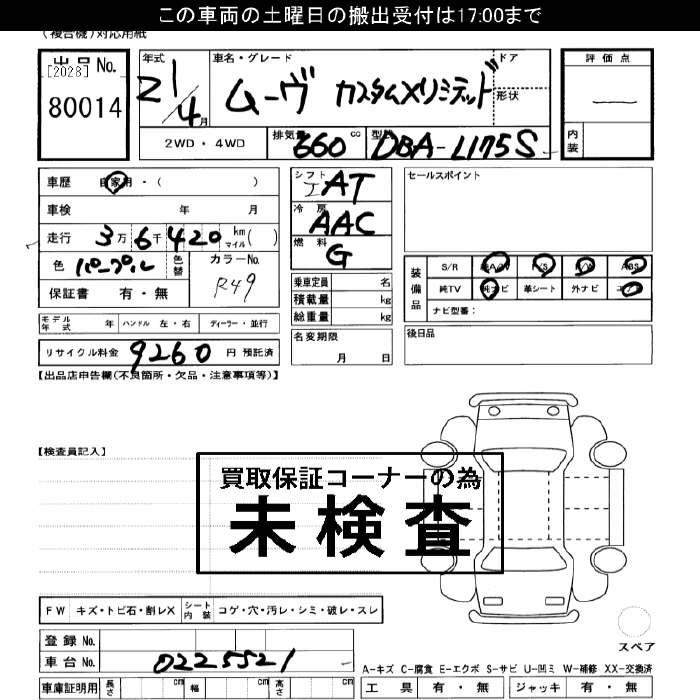 この車両の土曜日の搬出受付は17:00まで
(複合機)対応用紙
出品No. [2028] 80014
年式 21/4月
車名・グレード ムーヴ カスタムXリミテッド
ドア 形状
2WD・4WD 排気量 660 cc 型式 DBA-L175S
評価点 —
内装
車歴 自家用・( )
車検 年 月
走行 3万6千420 km マイル( )
色 パープル 色替 カラーNo. R49
保証書 有・無
シフト AT
冷房 AAC
燃料 G
乗車定員 名
積載量 kg
総重量 kg
セールスポイント
装備品 S/R 純A/W P/S P/W ABS
純TV 純ナビ 革シート 外ナビ
ナビ型番:
モデル年式 年 ハンドル 左・右 ディーラー・並行
名変期限 月 日
後日品
リサイクル料金 9260 円 預託済
【出品店申告欄(不良箇所・欠品・注意事項等)】
【検査員記入】
買取保証コーナーの為
未検査
FW キズ・トビ石・割レX シート内装 コゲ・穴・汚レ・シミ・破レ・スレ
登録No.
車台No. 0225521
スペア
A-キズ C-腐食 E-エクボ S-サビ U-凹ミ W-補修 XX-交換済
車庫証明用 長さ cm 幅 cm 高さ cm
工具 有・無 ジャッキ 有・無